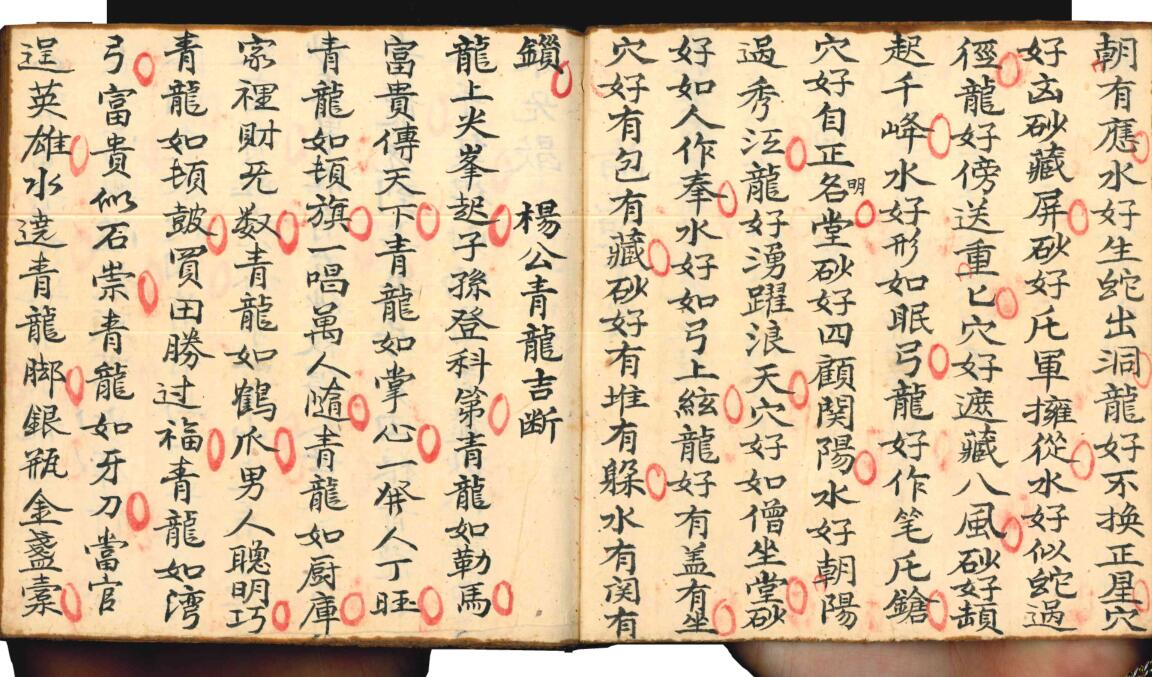 朝有應水好生蛇出洞龍好不換正星穴
好凶砂藏屏砂好兵軍擁從水好似蛇過
徑龍好傍送重匕穴好遮藏八風砂好頓
起千峰水好形如眠弓龍好作笔槍
穴好自正名明堂砂好四顧関陽水好朝陽
過秀江龍好湧躍浪天穴好如僧坐堂砂
好如人作奉水好如弓上絃龍好有盖有坐
穴好有包有藏砂好有堆有躲水有関有
鎖 楊公青龍吉断
龍上火峯起子孫登科第青龍如勒馬
富貴傳天下青龍如掌心一発人丁旺
青龍如頓旗一唱萬人隨青龍如厨庫
家裡財无数青龍如鶴爪男人聰明巧
青龍如頓鼓買田勝过福青龍如湾
弓富貴似石崇青龍如牙刀當官
逞英雄水遶青龍脚銀瓶金盞